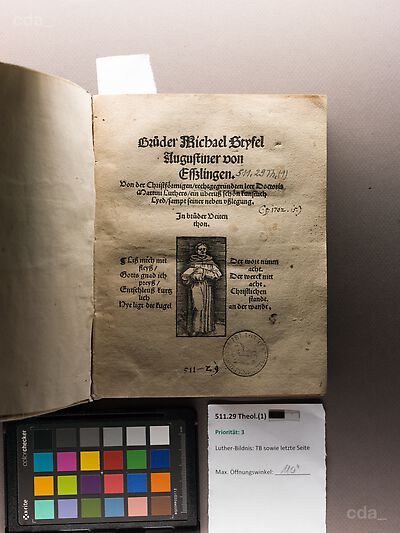 cda_
Brůder Michael Styfel
Augustiner von
Esszlingen.
511. 29 Th.(1)
Von der Christförmigen/rechtgegründten leer Doctoris
Martini Luthers/ein überuß schön kunstlich
Lyed/sampt seiner neben vßlegung.
In brůder Veiten
thon.
¶ Liß mich mit
fleyß/
Gotts gnad ich
preyß/
Entschleuß kurtz
lich
Hye ligt die kugel
Der wort nimm
acht.
Der werck nitt
acht.
Christlichen
standt.
an der wandt.
511-2.9
511.29 Theol.(1)
Priorität: 3
Luther-Bildnis: TB sowie letzte Seite
Max. Öffnungswinkel: 110°
colorchecker
x-rite
cda_